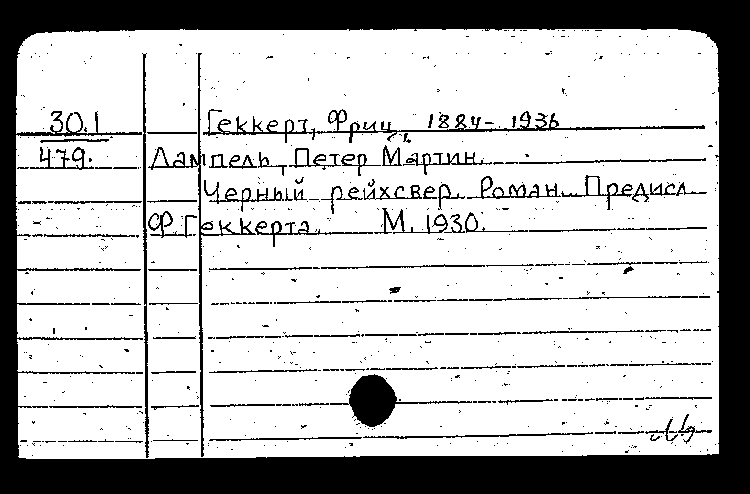 30.1 Геккерт, Фриц, 1884-1936
479. Лампель, Петер Мартин.
Черный рейхсвер. Роман. Предисл.
Ф. Геккерта. М. 1930.